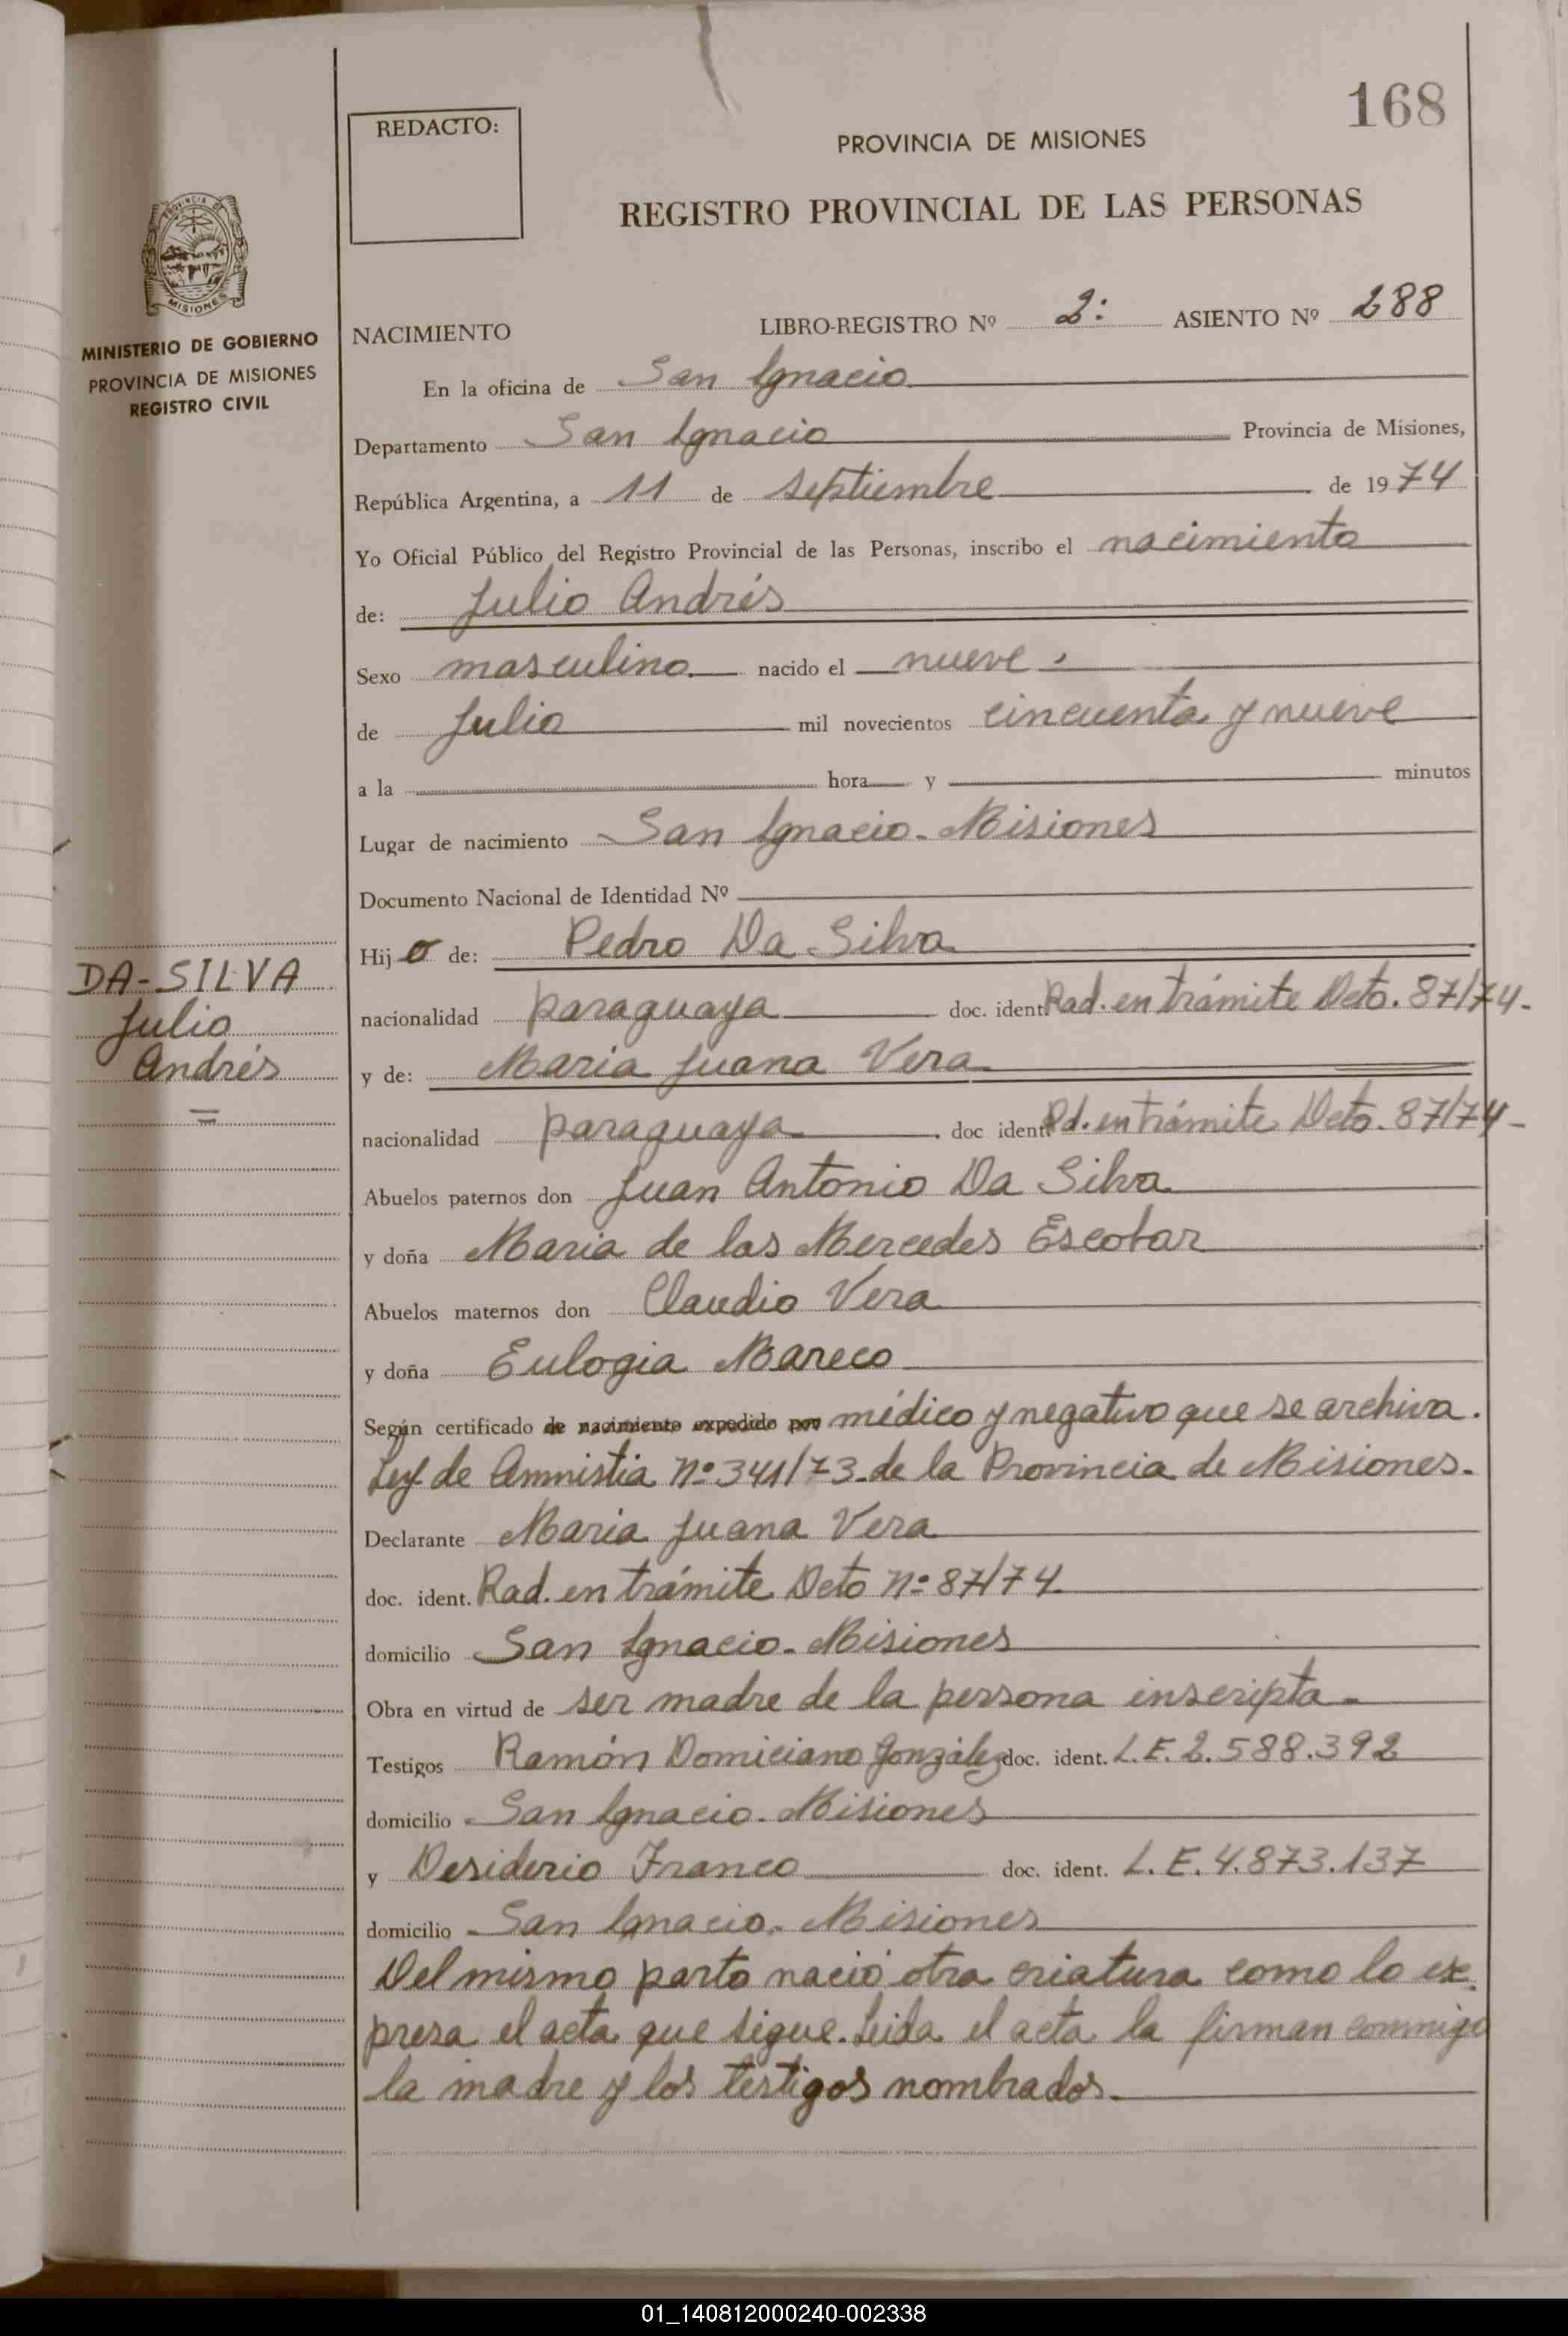 168
REDACTO:
PROVINCIA DE MISIONES
REGISTRO PROVINCIAL DE LAS PERSONAS
PROVINCIA DE
MISIONES
MINISTERIO DE GOBIERNO
PROVINCIA DE MISIONES
REGISTRO CIVIL
NACIMIENTO LIBRO-REGISTRO Nº 2: ASIENTO Nº 288
En la oficina de San Ignacio
Departamento San Ignacio Provincia de Misiones,
República Argentina, a 11 de septiembre de 1974
Yo Oficial Público del Registro Provincial de las Personas, inscribo el nacimiento
de: Julio Andrés
Sexo masculino nacido el nueve
de Julio mil novecientos cincuenta y nueve
a la hora y minutos
Lugar de nacimiento San Ignacio - Misiones
Documento Nacional de Identidad Nº
Hijo de: Pedro Da Silva
DA-SILVA
Julio
Andrés
nacionalidad paraguaya doc. ident. Rad. en trámite Dcto. 87/74-
y de: Maria Juana Vera
nacionalidad paraguaya doc ident. Rd. en trámite Dcto. 87/74-
Abuelos paternos don Juan Antonio Da Silva
y doña Maria de las Mercedes Escobar
Abuelos maternos don Claudio Vera
y doña Eulogia Mareco
Según certificado de nacimiento expedido por médico y negativo que se archiva.
Ley de Amnistia nº 341/73 de la Provincia de Misiones.
Declarante Maria Juana Vera
doc. ident. Rad. en trámite Dcto nº 87/74
domicilio San Ignacio - Misiones
Obra en virtud de ser madre de la persona inscripta -
Testigos Ramón Domiciano González doc. ident. L.E. 2.588.392
domicilio San Ignacio - Misiones
y Desiderio Franco doc. ident. L.E. 4.873.137
domicilio San Ignacio. Misiones
Del mismo parto nació otra criatura como lo ex-
presa el acta que sigue. Leida el acta la firman conmigo
la madre y los testigos nombrados.
01_140812000240-002338